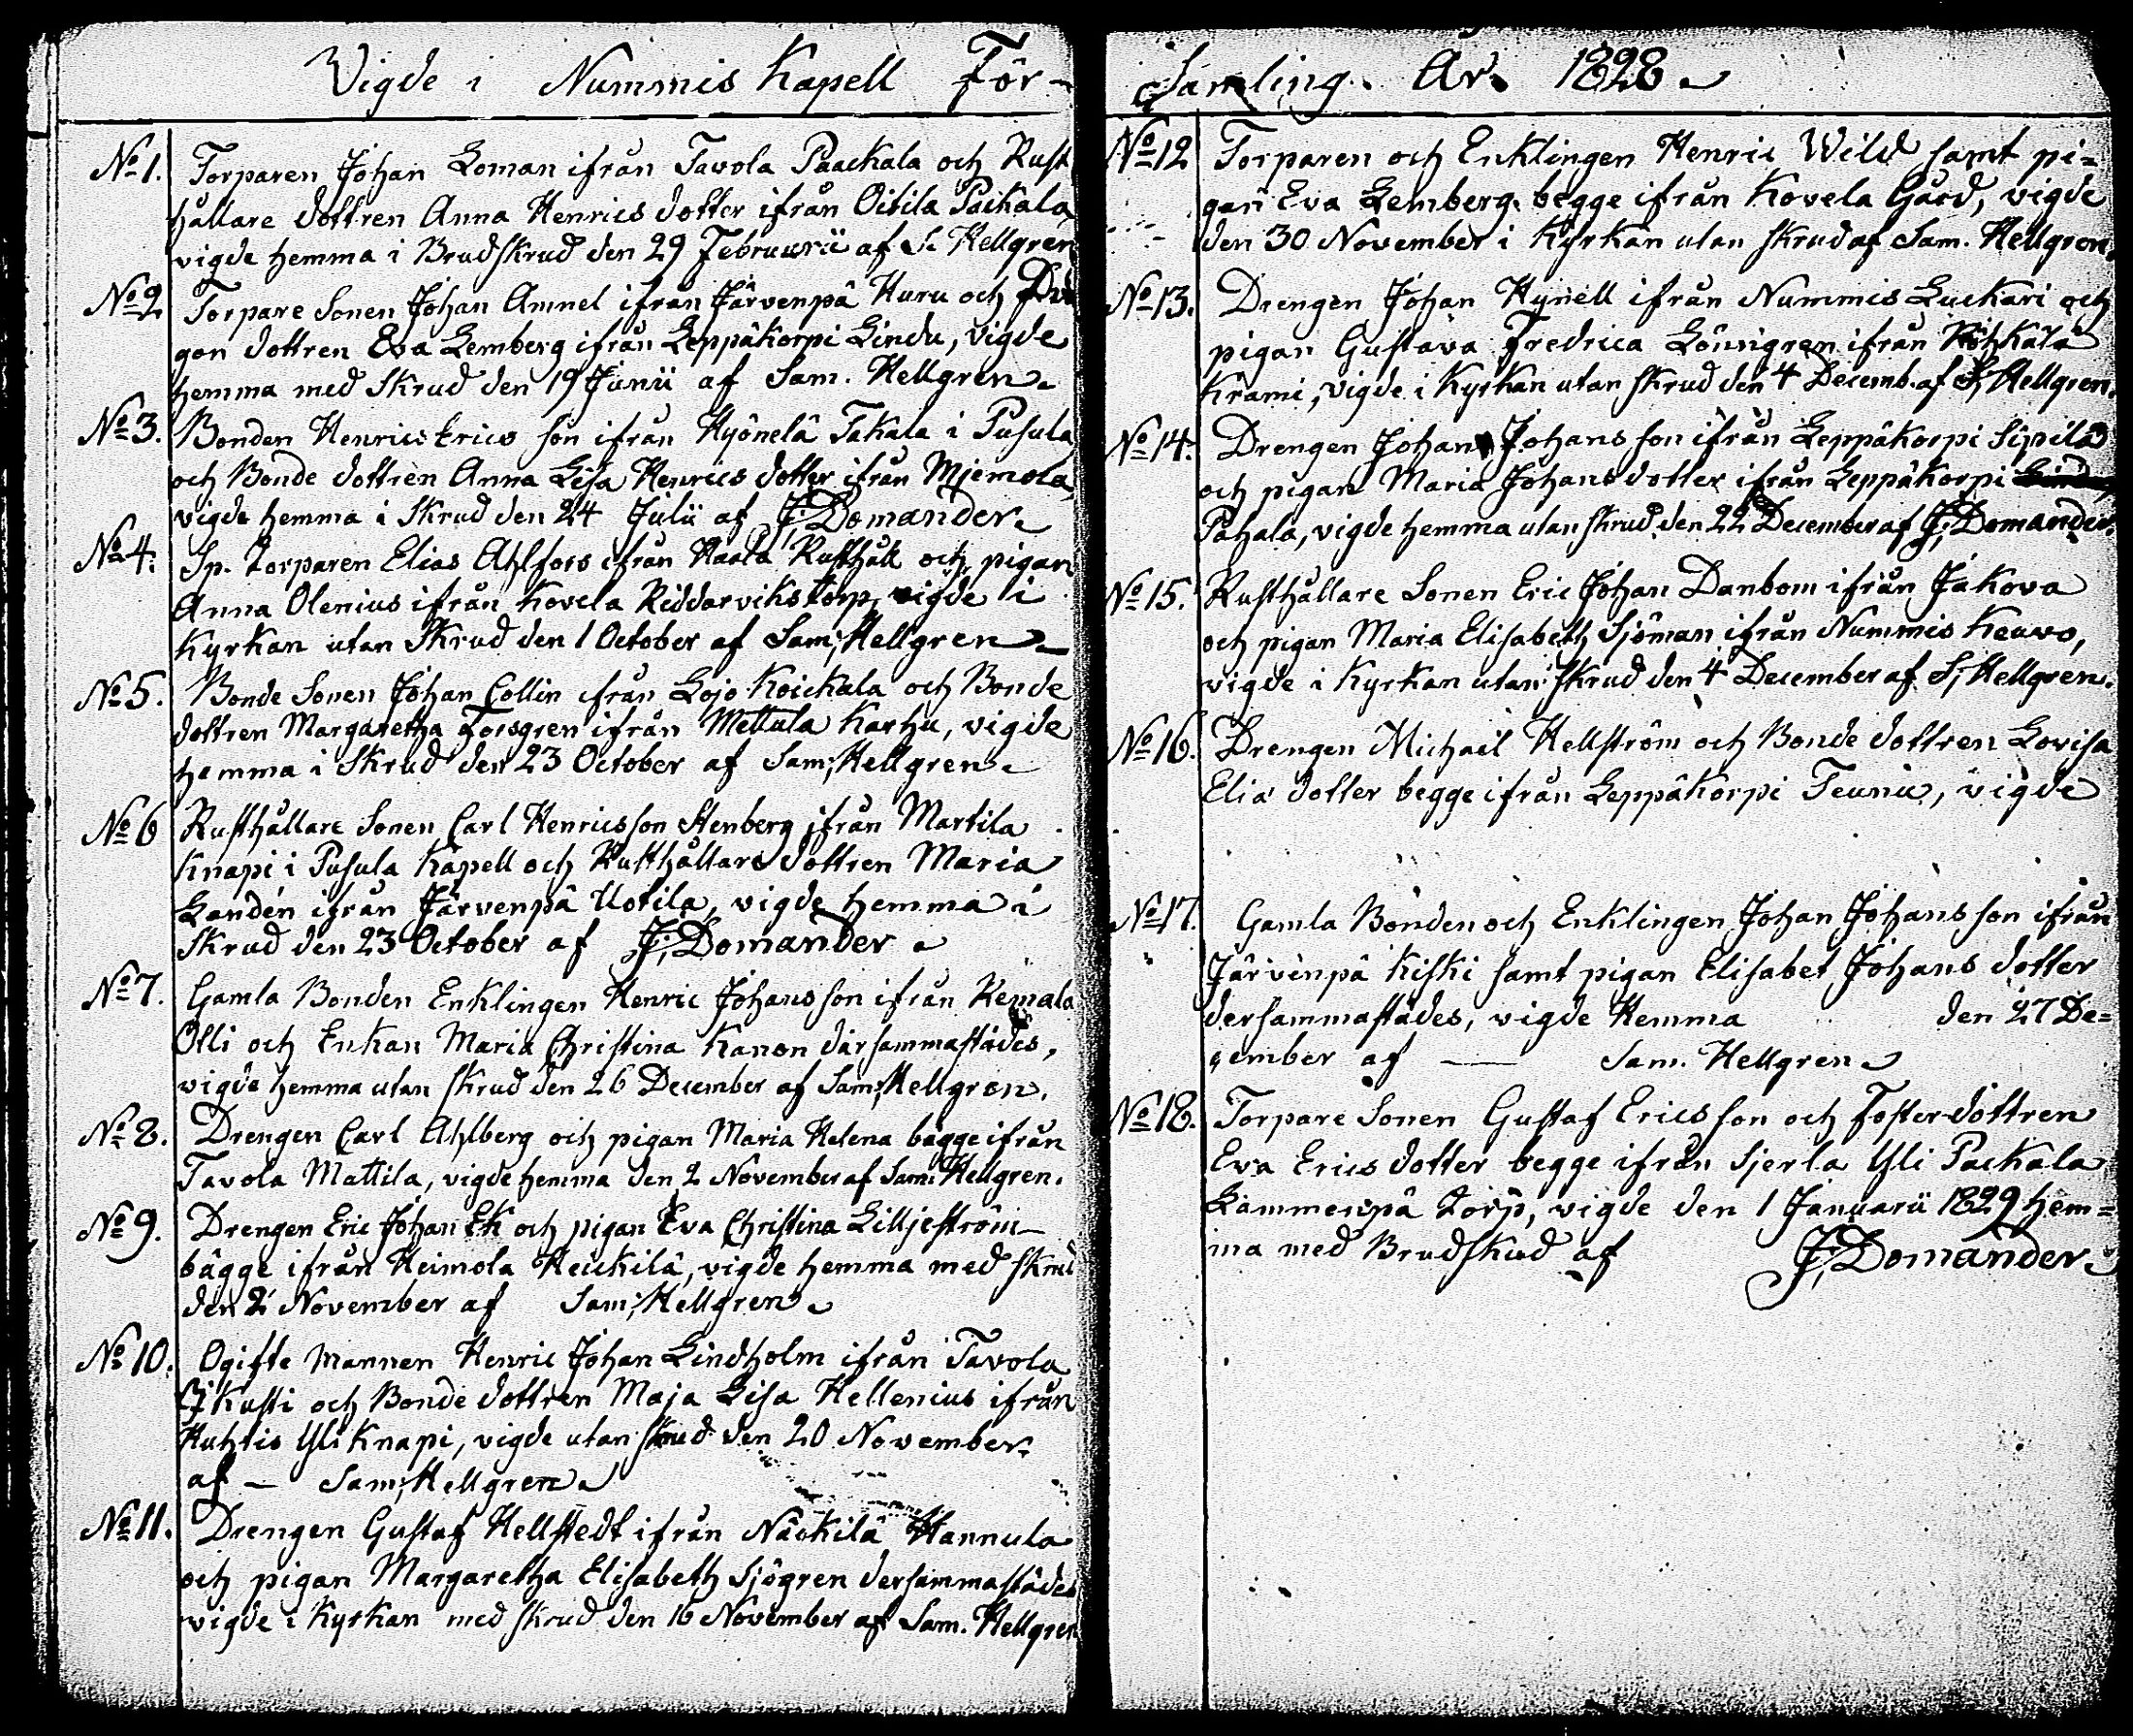 Vigde i Nummis Kapell För-
No 1. Torparen Johan Loman ifrån Tavola Paackala och Rust
hållare dottren Anna Henrics dotter ifrån Oitila Packala
vigde hemma i Brudskrud den 29 Februarii af S. Hellgren
No 2 Torpare Sonen Johan Amnel ifrån Järvenpä Huru och Dra
gon dottren Eva Lemberg ifrån Leppäkorpi Lindu, vigde
hemma med Skrud den 19 Junii af Sam. Hellgren.
No 3. Bonden Henric Erics son ifrån Hyönelä Takala i Pusula
och Bonde dottren Anna Lisa Henrics dotter ifrån Mjemola,
vigde hemma i Skrud den 24 Julii af J; Domander.
No 4. Sp. Torparen Elias Ahlfors ifrån Haala Rusthåll och pigan
Anna Olenius ifrån Kovela Riddarvikstorp, vigde i
Kyrkan utan Skrud den 1 October af Sam; Hellgren.
No 5. Bonde Sonen Johan Collin ifrån Lojo Koickala och Bonde
dottren Margaretha Forsgren ifrån Mettula Karhu, vigde
hemma i Skrud den 23 October af Sam; Hellgren.
No 6 Rusthållare Sonen Carl Henricsson Stenberg ifrån Martila
Knapi i Pusula Kapell och Rusthållare dottren Maria
Landén ifrån Järvenpä Uotila, vigde hemma i
Skrud den 23 October af J; Domander.
No 7. Gamla Bonden Enklingen Henric Johansson ifrån Remala
Olli och Enkan Maria Christina Kanon därsammastädes,
vigde hemma utan skrud den 26 December af Sam; Hellgren.
No 8. Drengen Carl Ahlberg och pigan Maria Helena bägge ifrån
Tavola Mattila, vigde hemma den 2 November af Sam. Hellgren.
No 9. Drengen Eric Johan Ek och pigan Eva Christina Lilljeström
bägge ifrån Heimola Heickilä, vigde hemma med skrud
den 2 November af Sam; Hellgren.
No 10. Ogifte Mannen Henric Johan Lindholm ifrån Tavola
Kusti och Bonde dottren Maja Lisa Hellenius ifrån
Huhtis Yli Knapi, vigde utan skrud den 20 November
af — Sam; Hellgren.
No 11. Drengen Gustaf Hellstedt ifrån Näckilä Hannula
och pigan Margaretha Elisabeth Sjögren dersammastädes
vigde i Kyrkan med skrud den 16 November af Sam. Hellgren
Samling. År. 1828.
No 12 Torparen och Enklingen Henric Wild samt pi=
gan Eva Lemberg, begge ifrån Kovela Gård, vigde
den 30 November i Kyrkan utan skrud af Sam. Hellgren.
No 13. Drengen Johan Hynell ifrån Nummis Luckari och
pigan Gustava Fredrica Lönngren ifrån Röhkälä
Krami, vigde i Kyrkan utan skrud den 4 Decemb. af S; Hellgren.
No 14. Drengen Johan Johans son ifrån Leppäkorpi Sipilä
och pigan Maria Johans dotter ifrån Leppäkorpi
Pahala, vigde hemma utan skrud den 22 December af J; Domander.
No 15. Rusthållare Sonen Eric Johan Danbom ifrån Jakova
och pigan Maria Elisabeth Sjöman ifrån Nummis Keuwo,
vigde i Kyrkan utan skrud den 4 December af S; Hellgren.
No 16. Drengen Michaël Hellström och Bonde dottren Lovisa
Elia dotter begge ifrån Leppäkorpi Teunu, vigde
No 17. Gamla Bonden och Enklingen Johan Johansson ifrån
Järvenpä Kiski samt pigan Elisabet Johans dotter
dersammastädes, vigde Hemma den 27 De=
cember af — Sam. Hellgren
No 18. Torpare Sonen Gustaf Ericsson och Fosterdottren
Eva Erics dotter begge ifrån Sjerla Yli Packala
Lammenpä torp, vigde den 1 Januarii 1829 hem=
ma med Brudskud af J; Domander.